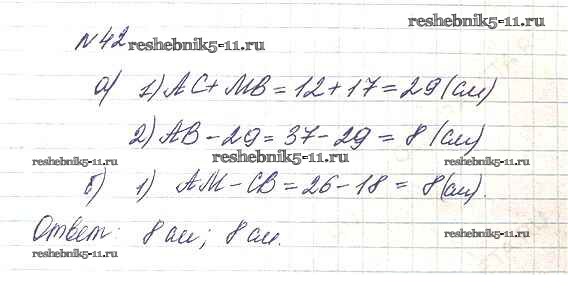 reshebnik5-11.ru
№42 reshebnik5-11.ru
а) 1) AC + MB = 12 + 17 = 29 (см)
2) AB - 29 = 37 - 29 = 8 (см)
reshebnik5-11.ru reshebnik5-11.ru reshebnik5-11.ru
б) 1) AM - CB = 26 - 18 = 8 (см).
Ответ: 8 см; 8 см.
reshebnik5-11.ru reshebnik5-11.ru